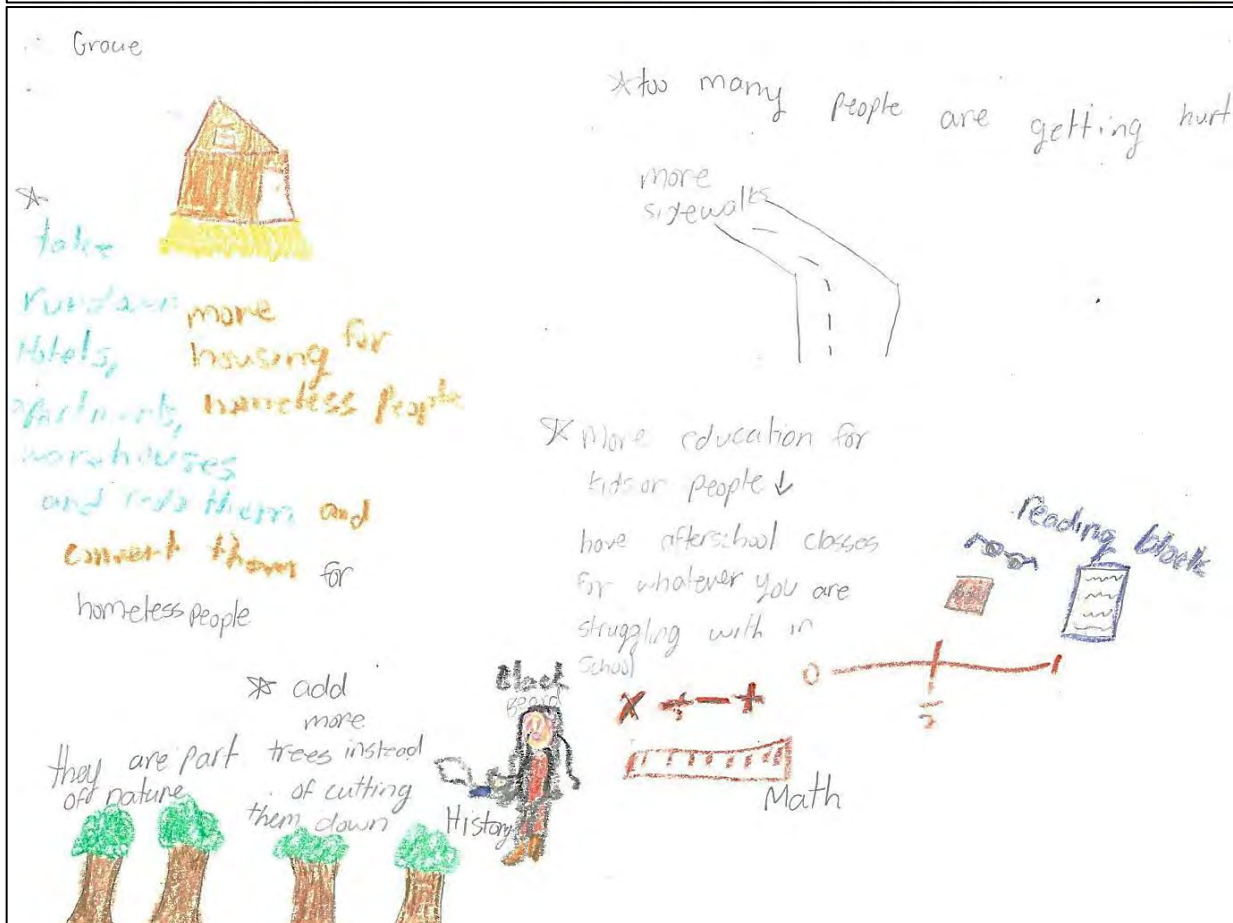 Grove
☆ too many people are getting hurt
more
sidewalks
☆
take
rundown
Hotels,
apartments,
warehouses
and redo them and
convert them for
homeless people
more
housing for
homeless people
☆ More education for
kids or people ↓
have afterschool classes
for whatever you are
struggling with in
School
reading block
0 1
1
2
X ÷ - +
Math
Black
Beard
History
☆ add
more
trees instead
of cutting
them down
they are part
off nature